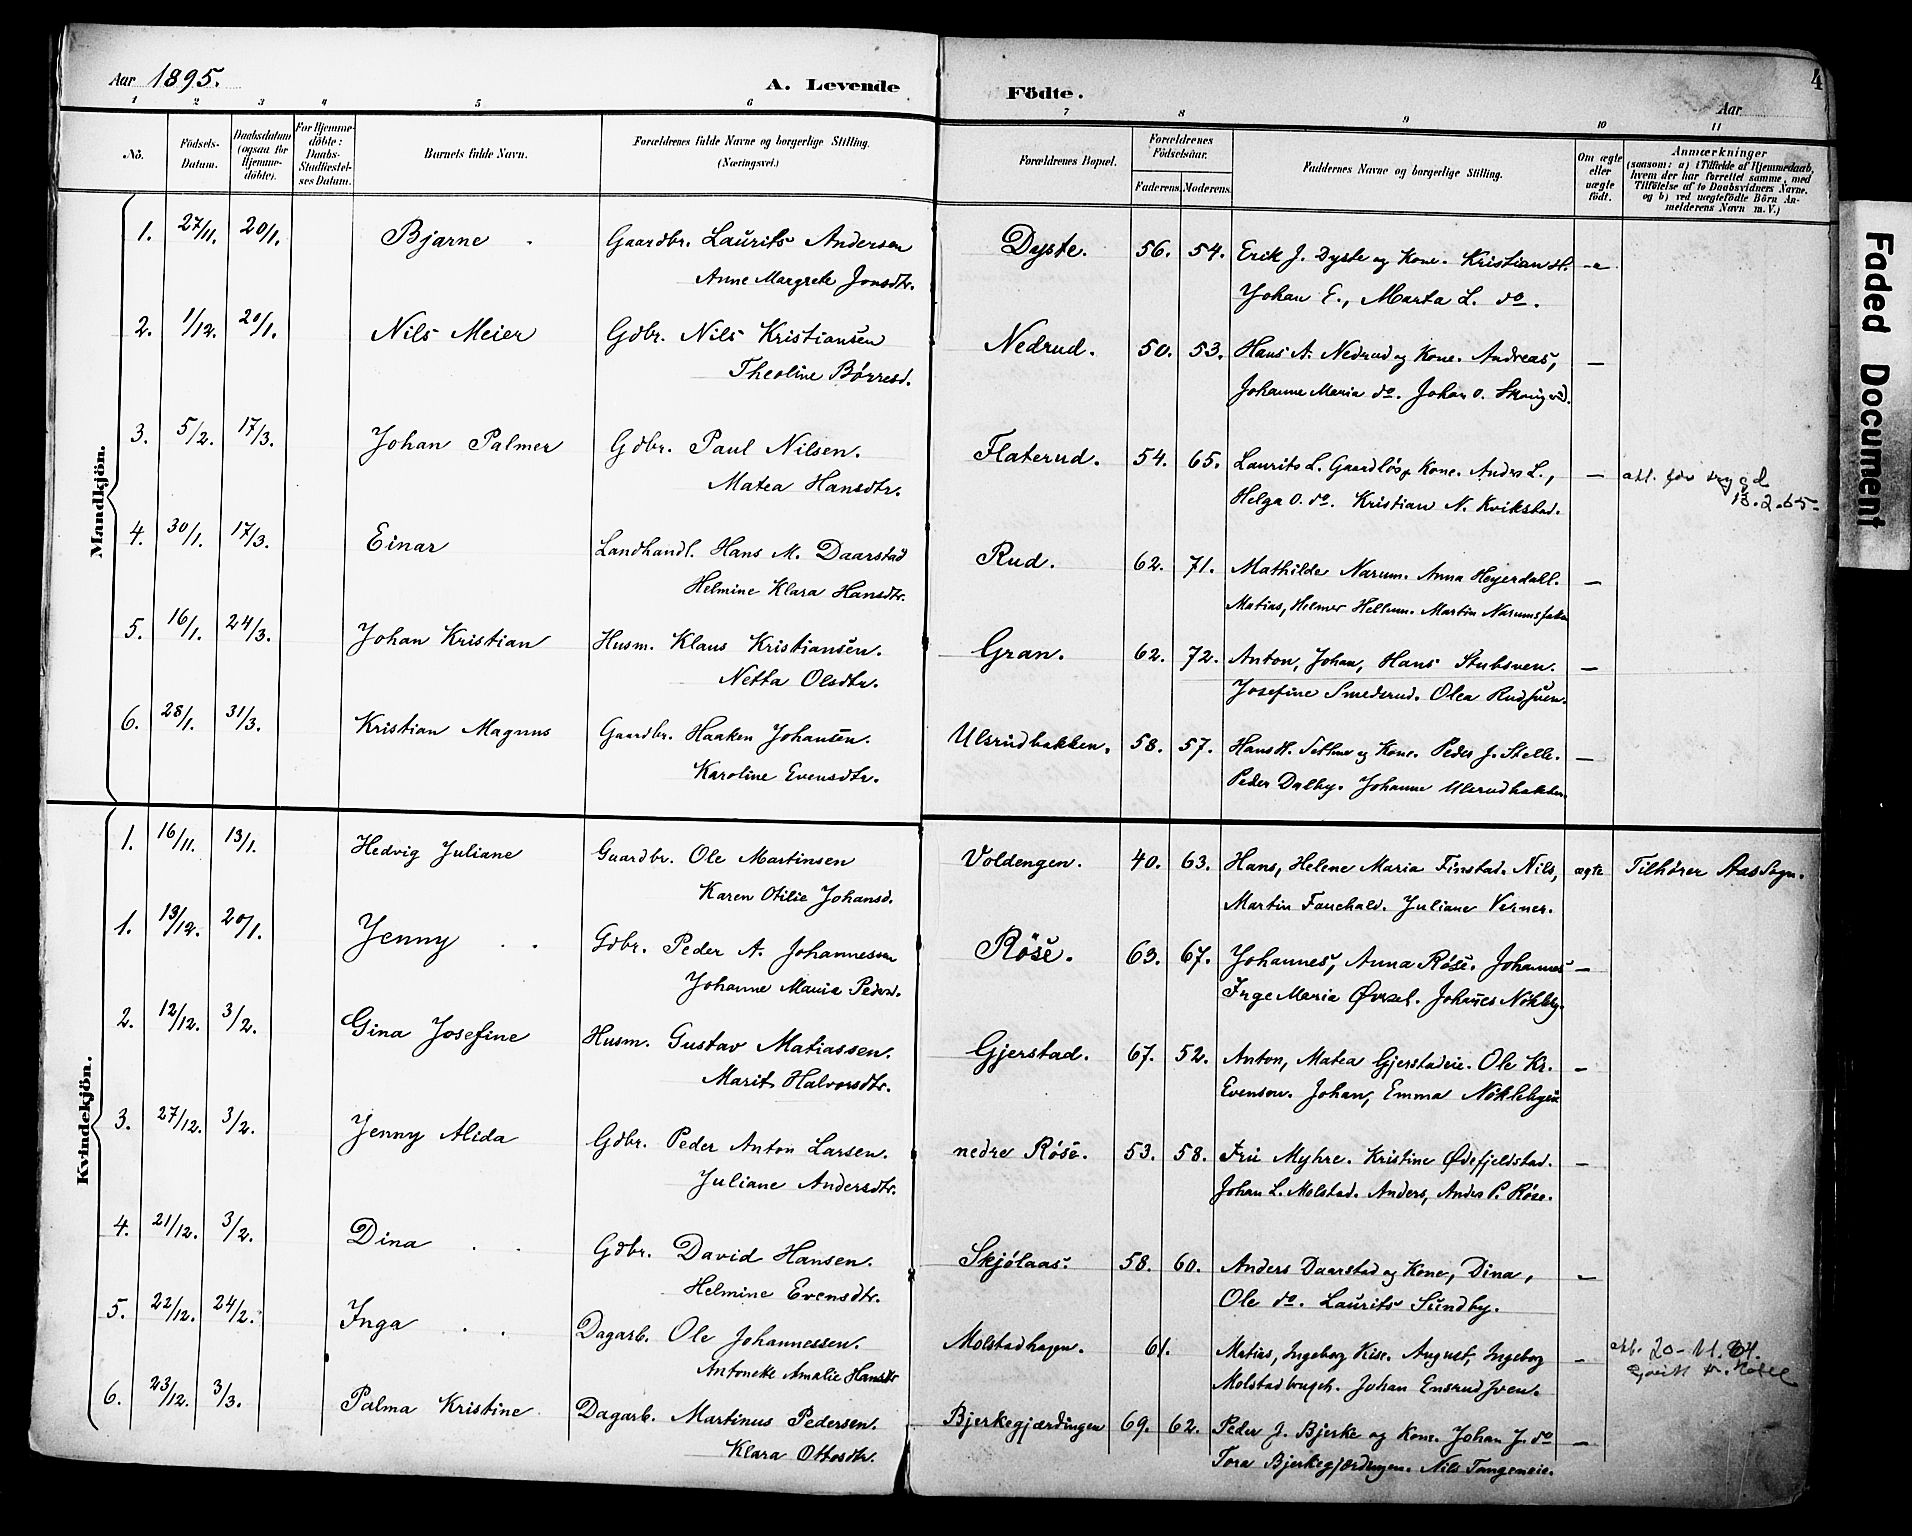 Aar 1895.
A. Levende Födte.
Aar
4
1 2 3 4 5 6 7 8 9 10 11
No.
Födsels-Datum.
Daabsdatum (ogsaa for Hjemme-döbte).
For Hjemme-döbte: Daabs-Stadfæstel-ses Datum.
Barnets fulde Navn.
Forældrenes fulde Navne og borgerlige Stilling. (Næringsvei.)
Forældrenes Bopæl.
Forældrenes Födselsaar.
Faderens. Moderens.
Faddernes Navne og borgerlige Stilling.
Om ægte eller uægte födt.
Anmærkninger
(saasom: a) i Tilfælde af Hjemmedaab, hvem der har forrettet samme, med Tilföielse af to Daabsvidners Navne, og b) ved uægtefödte Börn Anmelderens Navn m. V.)
Mandkjön.
1. 27/11. 20/1. Bjarne Gaardbr. Laurits Andersen Dyste. 56. 54. Erik J. Dyste og Kone. Kristian H.
Anne Margrete Jonsdtr. Johan E., Marta L. do.
2. 1/12. 20/1. Nils Meier Gdbr. Nils Kristiansen Nedrud. 50. 53. Hans A. Nedrud og Kone. Andreas, —
Theoline Börresd. Johanne Maria do. Johan O.
3. 5/2. 17/3. Johan Palmer Gdbr. Paul Nilsen. Flaterud. 54. 65. Laurits L. Gaardlös, Kone. Andrs L., — att. for
Matea Hansdtr. Helga O. do. Kristian N. Kvikstad. 13.2.65.
4. 30/1. 17/3. Einar Landhandl. Hans M. Daarstad Rud. 62. 71. Mathilde Narum. Anna Heyerdahl. —
Helmine Klara Hansdtr. Matias, Helmer Hellum. Martin
5. 16/1. 24/3. Johan Kristian Husm. Klaus Kristiansen. Gran. 62. 72. Anton, Johan, Hans Stubsveen. —
Netta Olsdtr. Josefine Smedsrud. Olea
6. 28/1. 31/3. Kristian Magnus Gaardbr. Haaken Johansen. Ulsrudbakken. 58. 57. Hans H. og Kone. Peder J. Stelle. —
Karoline Evensdtr. Peder Dalby. Johanne Ulsrudbakken.
Kvindekjön.
1. 16/11. 13/1. Hedvig Juliane Gaardbr. Ole Martinsen Voldengen. 40. 63. Hans, Helene Maria Finstad. Nils, ægte Tilhører Aas Sogn.
Karen Otilie Johansd. Martin Fauchald. Juliane Verner.
1. 13/12. 20/1. Jenny Gdbr. Peder A. Johannessen Röse. 63. 67. Johannes, Anna Röse. Johannes —
Johanne Maria Pedersd. Inge Maria Øvrsel. Johanes Nökleby.
2. 12/12. 3/2. Gina Josefine Husm. Gustav Matiassen. Gjerstad. 67. 52. Anton, Matea Gjerstadeie. Ole Kr. —
Marit Halvorsdtr. Evenson. Johan, Emma Nöklebyeie
3. 27/12. 3/2. Jenny Alida Gdbr. Peder Anton Larsen. nedre Röse. 53. 58. Fru Myhre. Kristine Ødefjeldstad. —
Juliane Andersdtr. Johan L. Molstad. Anders, Andrs P. Röse.
4. 21/12. 3/2. Dina Gdbr. David Hansen. Skjölaas. 58. 60. Anders Daarstad og Kone, Dina, —
Helmine Evensdtr. Ole do. Laurits Sundby.
5. 22/12. 24/2. Inga Dagarb. Ole Johannessen. Molstadhagen. 61. Matias, Ingeborg Kise. August, Ingeborg — att. 20-11.64.
Antonette Amalie Hansdtr. Johan
6. 23/12. 3/3. Palma Kristine Dagarb. Martinus Pedersen. Bjerkegjærdingen 69. 62. Peder J. Bjerke og Kone. Johan J. do —
Klara Ottosdtr. Tora Bjerkegjærdingen. Nils Tangeneie.
Faded Document